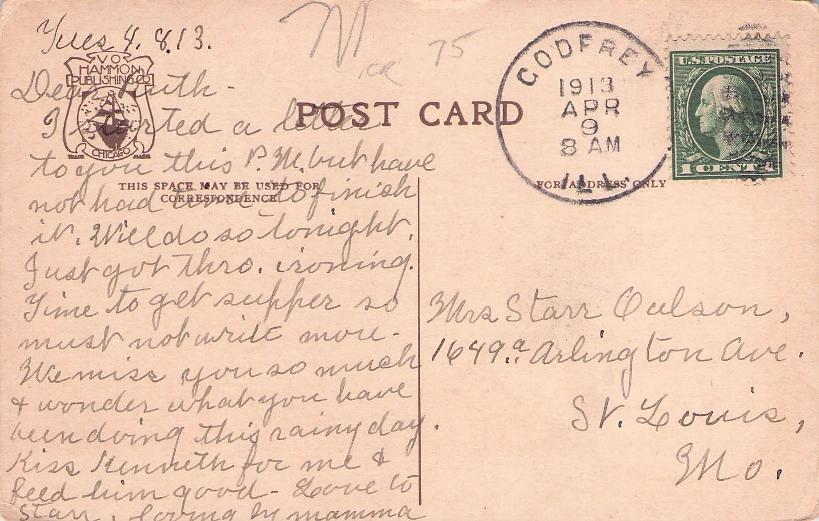 Tues 4.8.13.
Dear Ruth-
I started a letter
to you this P.M. but have
not had time to finish
it. Will do so tonight.
Just got thro. ironing.
Time to get supper so
must not write more-
We miss you so much
& wonder what you have
been doing this rainy day.
Kiss Kenneth for me &
feed him good- Love to
Starr, loving ly mamma
V O
HAMMON
PUBLISHING CO
CHICAGO
TRADE MARK
75
POST CARD
THIS SPACE MAY BE USED FOR
CORRESPONDENCE
FOR ADDRESS ONLY
GODFREY
1913
APR
9
8 AM
ILL.
U.S. POSTAGE
1 CENT 1
Mrs Starr Oulson,
1649.a Arlington Ave.
St. Louis,
Mo.